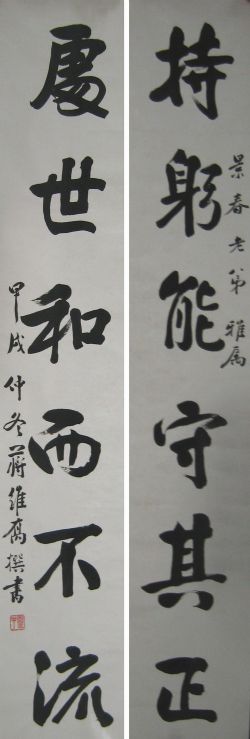 持躬能守其正
景春老弟雅属
處世和而不流
甲戌仲冬蔣維喬撰書